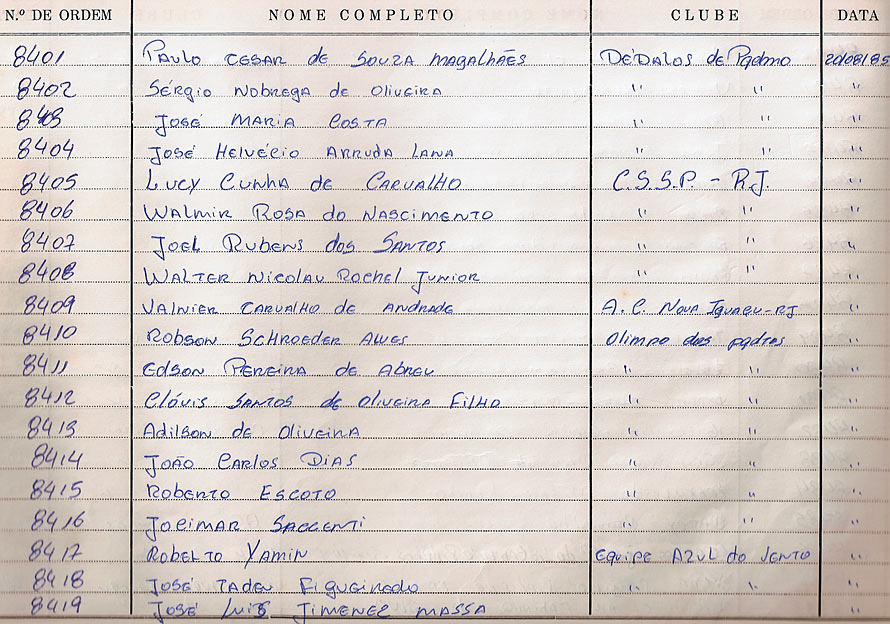 N.º DE ORDEM NOME COMPLETO CLUBE DATA
8401 Paulo Cesar de Souza Magalhães Dédalos de Padmo 20/08/85
8402 Sérgio Nobrega de Oliveira " " "
8403 José Maria Costa " " "
8404 José Helvécio Arruda Lana " " "
8405 Lucy Cunha de Carvalho C.S.S.P. - R.J. "
8406 Walmir Rosa do Nascimento " " "
8407 Joel Rubens dos Santos " " "
8408 Walter Nicolau Rochel Junior " " "
8409 Valnier Carvalho de Andrade A. C. Nova Iguaçu-RJ "
8410 Robson Schroeder Alves Olimpo dos padres "
8411 Edson Pereira de Abreu " " "
8412 Clóvis Santos de Oliveira Filho " " "
8413 Adilson de Oliveira " " "
8414 João Carlos Dias " " "
8415 Roberto Escoto " " "
8416 Joeimar " " "
8417 Roberto Yamin Equipe Azul do Vento "
8418 José Tadeu Figueiredo " " "
8419 José Luis Jimenez Massa